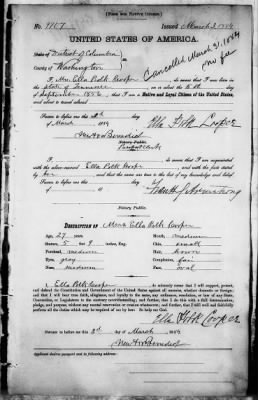 [FORM FOR NATIVE CITIZEN.]
No. 9107 Issued March 3, 1884
UNITED STATES OF AMERICA.
State of District of Columbia
County of Washington
Cancelled March 31, 1884
no fee
I, Mrs Ella Polk Cooper, do swear that I was born in the
State of Tennessee, on or about the 5th day
of September 1856, that I am a Native and Loyal Citizen of the United States,
and about to travel abroad
Sworn to before me this 3d day
of March 1884
Ella Polk Cooper
Notary Public.
I, am acquainted
with the above-named Ella Polk Cooper and with the facts stated
by her and that the same are true to the best of my knowledge and belief.
Sworn to before me this day
of 18
Notary Public.
DESCRIPTION OF Mrs Ella Polk Cooper
Age, 27 years Mouth, medium
Stature, 5 feet 9 inches, Eng. Chin, small
Forehead, medium Hair, brown
Eyes, gray Complexion, fair
Nose, medium Face, oval
I, Ella Polk Cooper, do solemnly swear that I will support, protect,
and defend the Constitution and Government of the United States against all enemies, whether domestic or foreign;
and that I will bear true faith, allegiance, and loyalty to the same, any ordinance, resolution, or law of any State,
Convention, or Legislature to the contrary notwithstanding; and further, that I do this with a full determination,
pledge, and purpose, without any mental reservation or evasion whatsoever; and further, that I will well and faithfully
perform all the duties which may be required of me by law: So help me God.
Ella Polk Cooper
Sworn to before me this 3d day of March 1884
Applicant desires passport to be sent to following address: